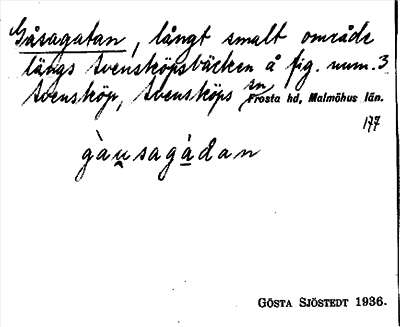 Gåsagatan, långt smalt område
längs Svensköpsbäcken å fig. num. 3
Svensköp, Svensköps sn
Frosta hd, Malmöhus län.
177
gàu̯sagàdan
GÖSTA SJÖSTEDT 1936.